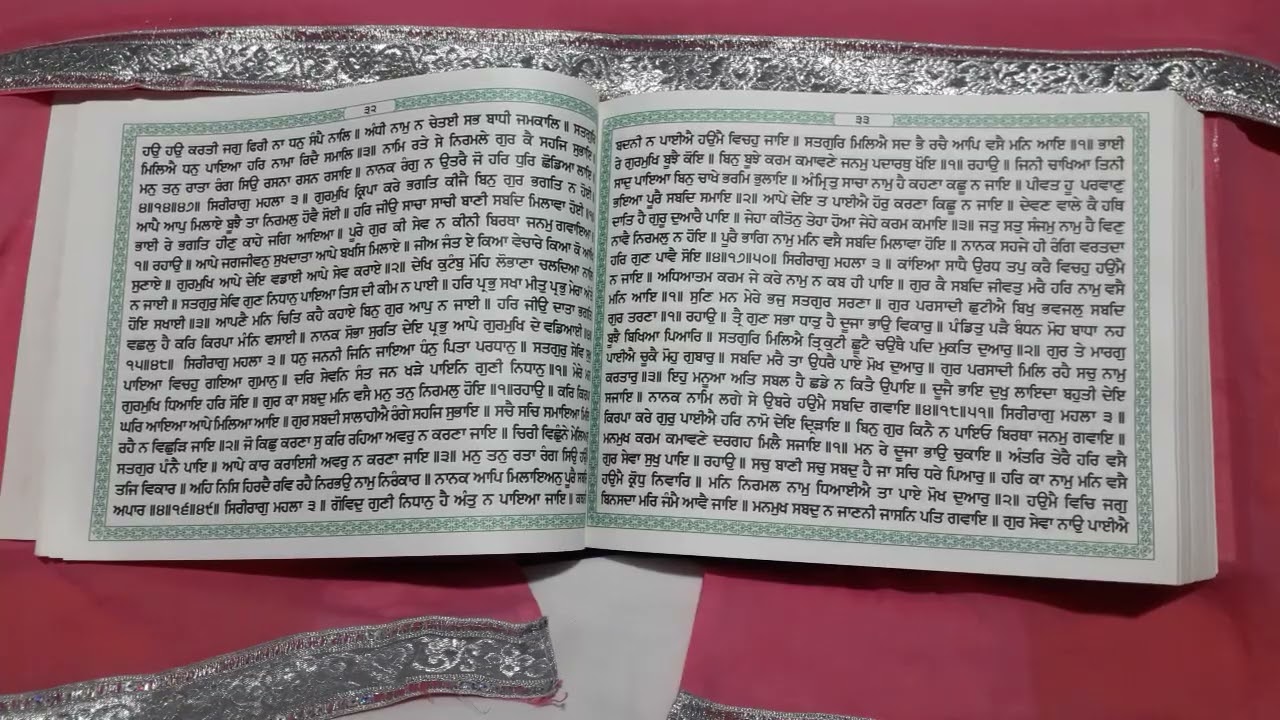 ੩੨
ਹਉ ਹਉ ਕਰਤੀ ਜਗੁ ਫਿਰੀ ਨਾ ਧਨੁ ਸੰਪੈ ਨਾਲਿ ॥ ਅੰਧੀ ਨਾਮੁ ਨ ਚੇਤਈ ਸਭ ਬਾਧੀ ਜਮਕਾਲਿ ॥ ਸਤਗੁਰਿ
ਮਿਲਿਐ ਧਨੁ ਪਾਇਆ ਹਰਿ ਨਾਮਾ ਰਿਦੈ ਸਮਾਲਿ ॥੩॥ ਨਾਮਿ ਰਤੇ ਸੇ ਨਿਰਮਲੇ ਗੁਰ ਕੈ ਸਹਜਿ ਸੁਭਾਇ
ਮਨੁ ਤਨੁ ਰਾਤਾ ਰੰਗ ਸਿਉ ਰਸਨਾ ਰਸਨ ਰਸਾਇ ॥ ਨਾਨਕ ਰੰਗੁ ਨ ਉਤਰੈ ਜੋ ਹਰਿ ਧੁਰਿ ਛੋਡਿਆ ਲਾਇ
॥੪॥੧੪॥੪੭॥ ਸਿਰੀਰਾਗੁ ਮਹਲਾ ੩ ॥ ਗੁਰਮੁਖਿ ਕ੍ਰਿਪਾ ਕਰੇ ਭਗਤਿ ਕੀਜੈ ਬਿਨੁ ਗੁਰ ਭਗਤਿ ਨ ਹੋਈ
ਆਪੈ ਆਪੁ ਮਿਲਾਏ ਬੂਝੈ ਤਾ ਨਿਰਮਲੁ ਹੋਵੈ ਸੋਈ ॥ ਹਰਿ ਜੀਉ ਸਾਚਾ ਸਾਚੀ ਬਾਣੀ ਸਬਦਿ ਮਿਲਾਵਾ ਹੋਈ
ਭਾਈ ਰੇ ਭਗਤਿ ਹੀਣੁ ਕਾਹੇ ਜਗਿ ਆਇਆ ॥ ਪੂਰੇ ਗੁਰ ਕੀ ਸੇਵ ਨ ਕੀਨੀ ਬਿਰਥਾ ਜਨਮੁ ਗਵਾਇਆ
੧॥ ਰਹਾਉ ॥ ਆਪੇ ਜਗਜੀਵਨੁ ਸੁਖਦਾਤਾ ਆਪੇ ਬਖਸਿ ਮਿਲਾਏ ॥ ਜੀਅ ਜੰਤ ਏ ਕਿਆ ਵੇਚਾਰੇ ਕਿਆ ਕੋ
ਸੁਣਾਏ ॥ ਗੁਰਮੁਖਿ ਆਪੇ ਦੇਇ ਵਡਾਈ ਆਪੇ ਸੇਵ ਕਰਾਏ ॥੨॥ ਦੇਖਿ ਕੁਟੰਬੁ ਮੋਹਿ ਲੋਭਾਣਾ ਚਲਦਿਆ
ਨ ਜਾਈ ॥ ਸਤਗੁਰੁ ਸੇਵਿ ਗੁਣ ਨਿਧਾਨੁ ਪਾਇਆ ਤਿਸ ਦੀ ਕੀਮ ਨ ਪਾਈ ॥ ਹਰਿ ਪ੍ਰਭੁ ਸਖਾ ਮੀਤੁ ਪ੍ਰਭੁ ਮੇਰਾ
ਹੋਇ ਸਖਾਈ ॥੩॥ ਆਪਣੈ ਮਨਿ ਚਿਤਿ ਕਹੈ ਕਹਾਏ ਬਿਨੁ ਗੁਰ ਆਪੁ ਨ ਜਾਈ ॥ ਹਰਿ ਜੀਉ ਦਾਤਾ ਭਗਤਿ
ਵਛਲੁ ਹੈ ਕਰਿ ਕਿਰਪਾ ਮੰਨਿ ਵਸਾਈ ॥ ਨਾਨਕ ਸੋਭਾ ਸੁਰਤਿ ਦੇਇ ਪ੍ਰਭੁ ਆਪੇ ਗੁਰਮੁਖਿ ਦੇ ਵਡਿਆਈ ॥੪
੧੫॥੪੮॥ ਸਿਰੀਰਾਗੁ ਮਹਲਾ ੩ ॥ ਧਨੁ ਜਨਨੀ ਜਿਨਿ ਜਾਇਆ ਧੰਨੁ ਪਿਤਾ ਪਰਧਾਨੁ ॥ ਸਤਗੁਰੁ ਸੇਵਿ
ਪਾਇਆ ਵਿਚਹੁ ਗਇਆ ਗੁਮਾਨੁ ॥ ਦਰਿ ਸੇਵਨਿ ਸੰਤ ਜਨ ਖੜੇ ਪਾਇਨਿ ਗੁਣੀ ਨਿਧਾਨੁ ॥੧॥ ਮੇਰੇ
ਗੁਰਮੁਖਿ ਧਿਆਇ ਹਰਿ ਸੋਇ ॥ ਗੁਰ ਕਾ ਸਬਦੁ ਮਨਿ ਵਸੈ ਮਨੁ ਤਨੁ ਨਿਰਮਲੁ ਹੋਇ ॥੧॥ਰਹਾਉ॥ ਕਰਿ ਕਿਰਪਾ
ਘਰਿ ਆਇਆ ਆਪੇ ਮਿਲਿਆ ਆਇ ॥ ਗੁਰ ਸਬਦੀ ਸਾਲਾਹੀਐ ਰੰਗੇ ਸਹਜਿ ਸੁਭਾਇ ॥ ਸਚੈ ਸਚਿ ਸਮਾਇਆ ਮਿਲਿ
ਰਹੈ ਨ ਵਿਛੁੜਿ ਜਾਇ ॥੨॥ ਜੋ ਕਿਛੁ ਕਰਣਾ ਸੁ ਕਰਿ ਰਹਿਆ ਅਵਰੁ ਨ ਕਰਣਾ ਜਾਇ ॥ ਚਿਰੀ ਵਿਛੁੰਨੇ ਮੇਲਿਅਨੁ
ਸਤਗੁਰ ਪੰਨੈ ਪਾਇ ॥ ਆਪੇ ਕਾਰ ਕਰਾਇਸੀ ਅਵਰੁ ਨ ਕਰਣਾ ਜਾਇ ॥੩॥ ਮਨੁ ਤਨੁ ਰਤਾ ਰੰਗ ਸਿਉ ਹਉਮੈ
ਤਜਿ ਵਿਕਾਰ ॥ ਅਹਿ ਨਿਸਿ ਹਿਰਦੈ ਰਵਿ ਰਹੈ ਨਿਰਭਉ ਨਾਮੁ ਨਿਰੰਕਾਰ ॥ ਨਾਨਕ ਆਪਿ ਮਿਲਾਇਅਨੁ ਪੂਰੈ ਸਬਦਿ
ਅਪਾਰ ॥੪॥੧੬॥੪੯॥ ਸਿਰੀਰਾਗੁ ਮਹਲਾ ੩ ॥ ਗੋਵਿਦੁ ਗੁਣੀ ਨਿਧਾਨੁ ਹੈ ਅੰਤੁ ਨ ਪਾਇਆ ਜਾਇ ॥ ਕਥਨੀ
੩੩
ਬਦਨੀ ਨ ਪਾਈਐ ਹਉਮੈ ਵਿਚਹੁ ਜਾਇ ॥ ਸਤਗੁਰਿ ਮਿਲਿਐ ਸਦ ਭੈ ਰਚੈ ਆਪਿ ਵਸੈ ਮਨਿ ਆਇ ॥੧॥ ਭਾਈ
ਰੇ ਗੁਰਮੁਖਿ ਬੂਝੈ ਕੋਇ ॥ ਬਿਨੁ ਬੂਝੇ ਕਰਮ ਕਮਾਵਣੇ ਜਨਮੁ ਪਦਾਰਥੁ ਖੋਇ ॥੧॥ ਰਹਾਉ ॥ ਜਿਨੀ ਚਾਖਿਆ ਤਿਨੀ
ਸਾਦੁ ਪਾਇਆ ਬਿਨੁ ਚਾਖੇ ਭਰਮਿ ਭੁਲਾਇ ॥ ਅੰਮ੍ਰਿਤੁ ਸਾਚਾ ਨਾਮੁ ਹੈ ਕਹਣਾ ਕਛੂ ਨ ਜਾਇ ॥ ਪੀਵਤ ਹੂ ਪਰਵਾਣੁ
ਭਇਆ ਪੂਰੈ ਸਬਦਿ ਸਮਾਇ ॥੨॥ ਆਪੇ ਦੇਇ ਤ ਪਾਈਐ ਹੋਰੁ ਕਰਣਾ ਕਿਛੂ ਨ ਜਾਇ ॥ ਦੇਵਣ ਵਾਲੇ ਕੈ ਹਥਿ
ਦਾਤਿ ਹੈ ਗੁਰੂ ਦੁਆਰੈ ਪਾਇ ॥ ਜੇਹਾ ਕੀਤੋਨੁ ਤੇਹਾ ਹੋਆ ਜੇਹੇ ਕਰਮ ਕਮਾਇ ॥੩॥ ਜਤੁ ਸਤੁ ਸੰਜਮੁ ਨਾਮੁ ਹੈ ਵਿਣੁ
ਨਾਵੈ ਨਿਰਮਲੁ ਨ ਹੋਇ ॥ ਪੂਰੈ ਭਾਗਿ ਨਾਮੁ ਮਨਿ ਵਸੈ ਸਬਦਿ ਮਿਲਾਵਾ ਹੋਇ ॥ ਨਾਨਕ ਸਹਜੇ ਹੀ ਰੰਗਿ ਵਰਤਦਾ
ਹਰਿ ਗੁਣ ਪਾਵੈ ਸੋਇ ॥੪॥੧੭॥੫੦॥ ਸਿਰੀਰਾਗੁ ਮਹਲਾ ੩ ॥ ਕਾਂਇਆ ਸਾਧੈ ਉਰਧ ਤਪੁ ਕਰੈ ਵਿਚਹੁ ਹਉਮੈ
ਨ ਜਾਇ ॥ ਅਧਿਆਤਮ ਕਰਮ ਜੇ ਕਰੇ ਨਾਮੁ ਨ ਕਬ ਹੀ ਪਾਇ ॥ ਗੁਰ ਕੈ ਸਬਦਿ ਜੀਵਤੁ ਮਰੈ ਹਰਿ ਨਾਮੁ ਵਸੈ
ਮਨਿ ਆਇ ॥੧॥ ਸੁਣਿ ਮਨ ਮੇਰੇ ਭਜੁ ਸਤਗੁਰ ਸਰਣਾ ॥ ਗੁਰ ਪਰਸਾਦੀ ਛੁਟੀਐ ਬਿਖੁ ਭਵਜਲੁ ਸਬਦਿ
ਗੁਰ ਤਰਣਾ ॥੧॥ ਰਹਾਉ ॥ ਤ੍ਰੈ ਗੁਣ ਸਭਾ ਧਾਤੁ ਹੈ ਦੂਜਾ ਭਾਉ ਵਿਕਾਰੁ ॥ ਪੰਡਿਤੁ ਪੜੈ ਬੰਧਨ ਮੋਹ ਬਾਧਾ ਨਹ
ਬੂਝੈ ਬਿਖਿਆ ਪਿਆਰਿ ॥ ਸਤਗੁਰਿ ਮਿਲਿਐ ਤ੍ਰਿਕੁਟੀ ਛੂਟੈ ਚਉਥੈ ਪਦਿ ਮੁਕਤਿ ਦੁਆਰੁ ॥੨॥ ਗੁਰ ਤੇ ਮਾਰਗੁ
ਪਾਈਐ ਚੂਕੈ ਮੋਹੁ ਗੁਬਾਰੁ ॥ ਸਬਦਿ ਮਰੈ ਤਾ ਉਧਰੈ ਪਾਏ ਮੋਖ ਦੁਆਰੁ ॥ ਗੁਰ ਪਰਸਾਦੀ ਮਿਲਿ ਰਹੈ ਸਚੁ ਨਾਮੁ
ਕਰਤਾਰੁ ॥੩॥ ਇਹੁ ਮਨੂਆ ਅਤਿ ਸਬਲ ਹੈ ਛਡੇ ਨ ਕਿਤੈ ਉਪਾਇ ॥ ਦੂਜੈ ਭਾਇ ਦੁਖੁ ਲਾਇਦਾ ਬਹੁਤੀ ਦੇਇ
ਸਜਾਇ ॥ ਨਾਨਕ ਨਾਮਿ ਲਗੇ ਸੇ ਉਬਰੇ ਹਉਮੈ ਸਬਦਿ ਗਵਾਇ ॥੪॥੧੮॥੫੧॥ ਸਿਰੀਰਾਗੁ ਮਹਲਾ ੩ ॥
ਕਿਰਪਾ ਕਰੇ ਗੁਰੁ ਪਾਈਐ ਹਰਿ ਨਾਮੋ ਦੇਇ ਦ੍ਰਿੜਾਇ ॥ ਬਿਨੁ ਗੁਰ ਕਿਨੈ ਨ ਪਾਇਓ ਬਿਰਥਾ ਜਨਮੁ ਗਵਾਇ ॥
ਮਨਮੁਖ ਕਰਮ ਕਮਾਵਣੇ ਦਰਗਹ ਮਿਲੈ ਸਜਾਇ ॥੧॥ ਮਨ ਰੇ ਦੂਜਾ ਭਾਉ ਚੁਕਾਇ ॥ ਅੰਤਰਿ ਤੇਰੈ ਹਰਿ ਵਸੈ
ਗੁਰ ਸੇਵਾ ਸੁਖੁ ਪਾਇ ॥ ਰਹਾਉ ॥ ਸਚੁ ਬਾਣੀ ਸਚੁ ਸਬਦੁ ਹੈ ਜਾ ਸਚਿ ਧਰੇ ਪਿਆਰੁ ॥ ਹਰਿ ਕਾ ਨਾਮੁ ਮਨਿ ਵਸੈ
ਹਉਮੈ ਕ੍ਰੋਧੁ ਨਿਵਾਰਿ ॥ ਮਨਿ ਨਿਰਮਲ ਨਾਮੁ ਧਿਆਈਐ ਤਾ ਪਾਏ ਮੋਖ ਦੁਆਰੁ ॥੨॥ ਹਉਮੈ ਵਿਚਿ ਜਗੁ
ਬਿਨਸਦਾ ਮਰਿ ਜੰਮੈ ਆਵੈ ਜਾਇ ॥ ਮਨਮੁਖ ਸਬਦੁ ਨ ਜਾਣਨੀ ਜਾਸਨਿ ਪਤਿ ਗਵਾਇ ॥ ਗੁਰ ਸੇਵਾ ਨਾਉ ਪਾਈਐ